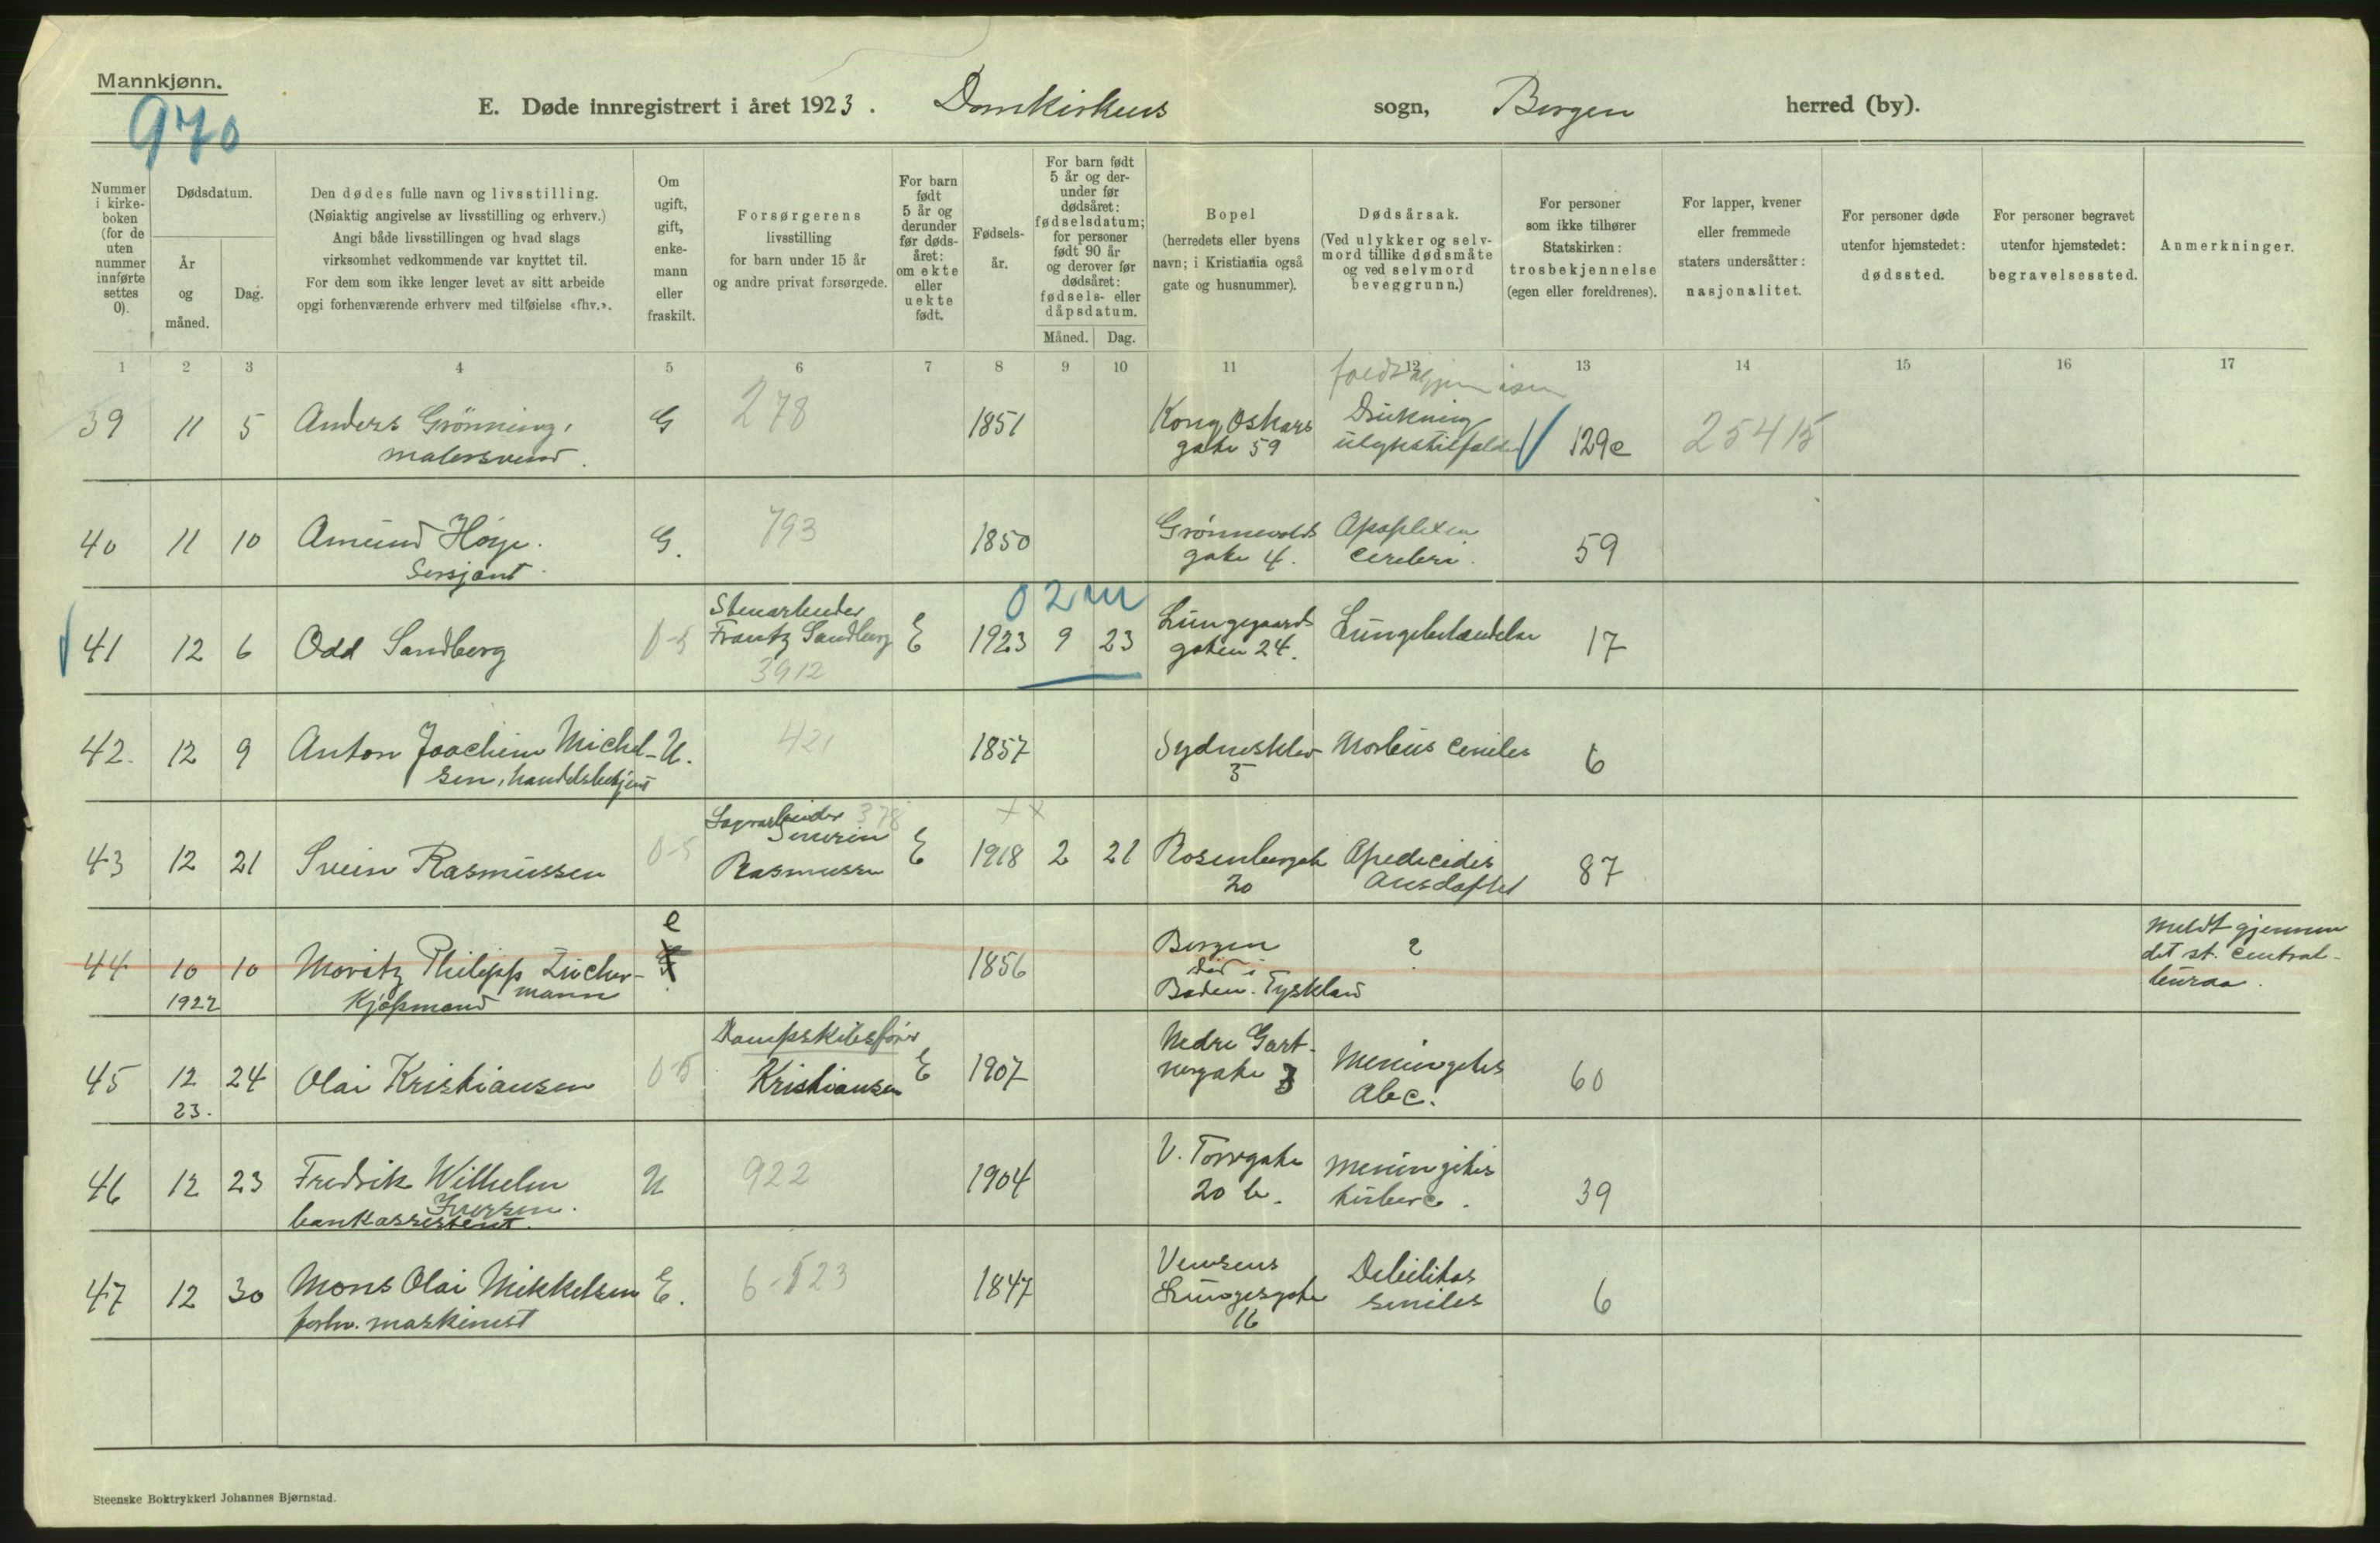 Mannkjønn.
970
E. Døde innregistrert i året 1923. Domkirkens sogn, Bergen herred (by).
Nummer i kirke-boken (for de uten nummer innførte settes 0).
Dødsdatum.
År og måned.
Dag.
Den dødes fulle navn og livsstilling.
(Nøiaktig angivelse av livsstilling og erhverv.)
Angi både livsstillingen og hvad slags
virksomhet vedkommende var knyttet til.
For dem som ikke lenger levet av sitt arbeide
opgi forhenværende erhverv med tilføielse «fhv.».
Om ugift, gift, enke-mann eller fraskilt.
Forsørgerens
livsstilling
for barn under 15 år
og andre privat forsørgede.
For barn født 5 år og derunder før døds-året: om ekte eller uekte født.
Fødsels-år.
For barn født 5 år og der-under før dødsåret: fødselsdatum; for personer født 90 år og derover før dødsåret: fødsels- eller dåpsdatum.
Måned. Dag.
Bopel
(herredets eller byens
navn; i Kristiania også
gate og husnummer).
Dødsårsak.
(Ved ulykker og selv-
mord tillike dødsmåte
og ved selvmord
beveggrunn.)
For personer
som ikke tilhører
Statskirken:
trosbekjennelse
(egen eller foreldrenes).
For lapper, kvener
eller fremmede
staters undersåtter:
nasjonalitet.
For personer døde
utenfor hjemstedet:
dødssted.
For personer begravet
utenfor hjemstedet:
begravelsessted.
Anmerkninger.
1 2 3 4 5 6 7 8 9 10 11 12 13 14 15 16 17
39 11 5 Anders Grönning, G 278 1851 Kong Oskars Drukning 129e 25415
malersvend. gate 59 ulykkestilfelde
40 11 10 Amund Höye. G. 793 1850 Grönnevolds Apoplexia 59
Sersjant. gate 4. cerebri.
02m
Stenarbeider
41 12 6 Odd Sandberg 0-5 Frantz Sandberg E 1923 9 23 Lungegaards Lungebetændelse 17
3912 gaten 24.
42. 12 9 Anton Joachim Michel- U. 421 1857 Sydnesklev Morbus ceniles 6
sen, handelsbetjent 5
378 ++
43 12 21 Svein Rasmussen 0-5 Severin Rasmussen E 1918 2 21 Rosenberggt 87
20
44 10 10 Moritz Philipp Zucker- e 1856 Bergen ? meldt gjennem
1922 Kjøpmand mann død i det st. central-
Baden. Tyskland bureau.
Dampskibsfører
45 12 24 Olai Kristiansen 0-5 Kristiansen E 1907 Nedre Gart- Meningitis 60
23. nergate 3
46 12 23 Fredrik Wilhelm U 922 1904 V. Torvgate meningitis 39
Iversen. 20 b. tuberc.
bankassistent.
47 12 30 Mons Olai Mikkelsen E. 6-523 1847 Debilitas 6
forhv. maskinist Lungesgate seniles
16
Steenske Boktrykkeri Johannes Bjørnstad.